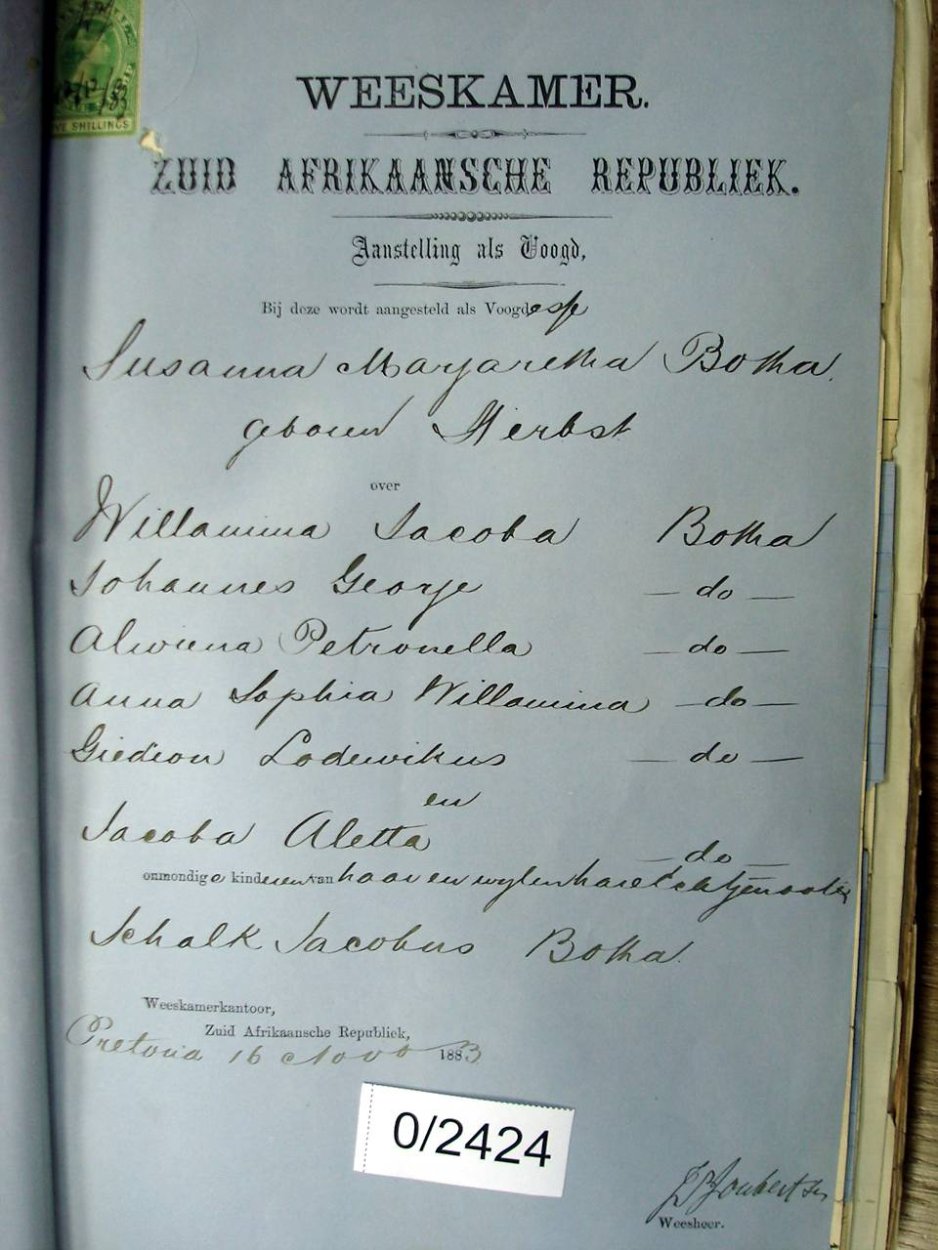 SHILLINGS
WEESKAMER.
ZUID AFRIKAANSCHE REPUBLIEK.
Aanstelling als Voogd,
Bij deze wordt aangesteld als Voogdesse
Susanna Margaretha Botha.
geboren Herbst
over
Willamina Jacoba Botha
Johannes George — do —
Alwiena Petronella — do —
Anna Sophia Willamina — do —
Giedion Lodewikus — do —
en
Jacoba Aletta — do —
onmondige kinderen van haar en wylen hare Echtgenoot
Schalk Jacobus Botha.
Weeskamerkantoor,
Zuid Afrikaansche Republiek,
Pretoria 16 Novb 1883
0/2424
Joubert
Weesheer.